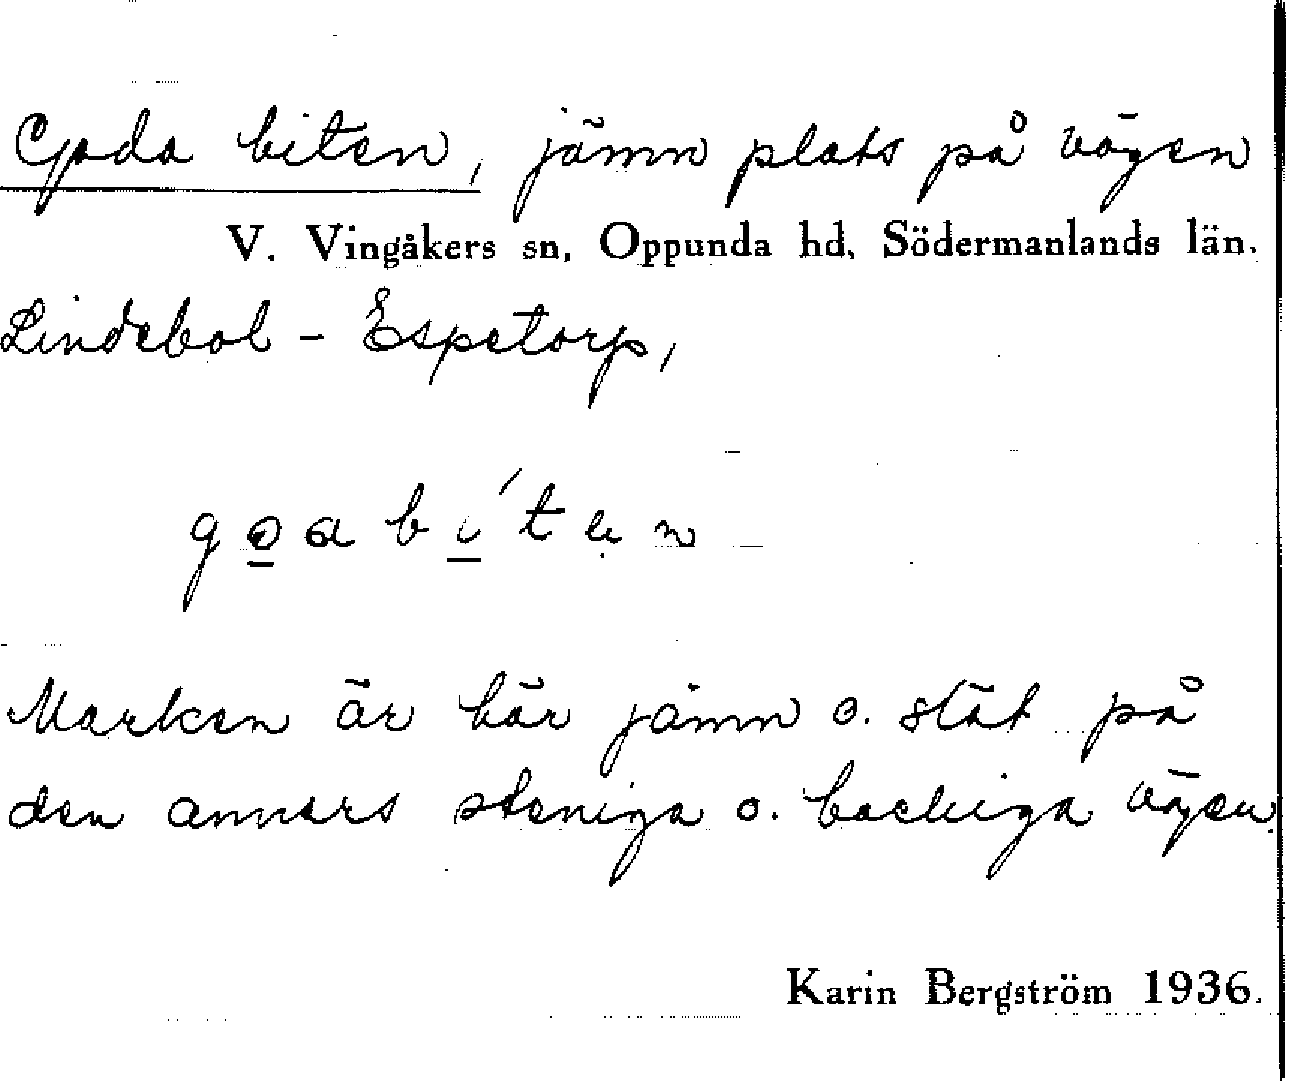 Goda biten, jämn plats på vägen
V. Vingåkers sn, Oppunda hd, Södermanlands län.
Lindebol - Espetorp,
g o a b i ́ t e n
Marken är här jämn o. slät på
den annars steniga o. backiga vägen.
Karin Bergström 1936.